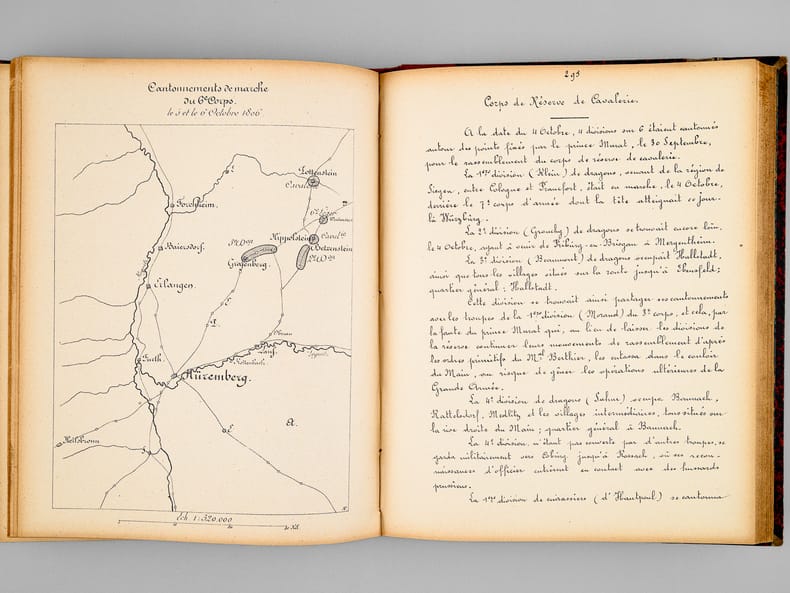 Cantonnements de marche
du 6e Corps.
le 5 et le 6 Octobre 1806
Pottenstein
Forchheim.
Hippolstein
Betzenstein
Baiersdorf.
Gräfenberg.
Erlangen.
Lauf.
Furth.
Nüremberg.
Heilsbronn
Ech 1:320.000
295
Corps de Réserve de Cavalerie.
A la date du 4 Octobre, 4 divisions sur 6 étaient cantonnées
autour des points fixés par le prince Murat, le 30 Septembre,
pour le rassemblement du corps de réserve de cavalerie.
La 1ère division (Klein) de dragons, venant de la région de
Siegen, entre Cologne et Francfort, était en marche, le 4 Octobre,
derrière le 7e corps d'armée dont la tête atteignait ce jour-
là Würzbürg.
La 2e division (Grouchy) de dragons se trouvait encore loin,
le 4 Octobre, ayant à venir de Fribürg-en-Brisgau à Mergentheim.
La 3e division (Beaumont) de dragons occupait Hallstadt,
ainsi que tous les villages situés sur la route jusqu'à Ebensfeld;
quartier général: Hallstadt.
Cette division se trouvait ainsi partager ses cantonnements
avec les troupes de la 1ère division (Morand) du 3e corps, et cela, par
la faute du prince Murat qui, au lieu de laisser les divisions de
la réserve continuer leurs mouvements de rassemblement d'après
les ordres primitifs du Mal Berthier, les entassa dans le couloir
du Main, au risque de gêner les opérations ultérieures de la
Grande Armée.
La 4e division de dragons (Sahuc) occupa Baunach,
Rattelsdorf, Medlitz et les villages intermédiaires, tous situés sur
la rive droite du Main; quartier général à Baunach.
La 4e division, n'étant pas couverte par d'autres troupes, se
garda militairement vers Cobürg jusqu'à Rossach, où ses recon-
naissances d'officier entrèrent en contact avec des hussards
prussiens.
La 1ère division de cuirassiers (d'Hautpoul) se cantonna